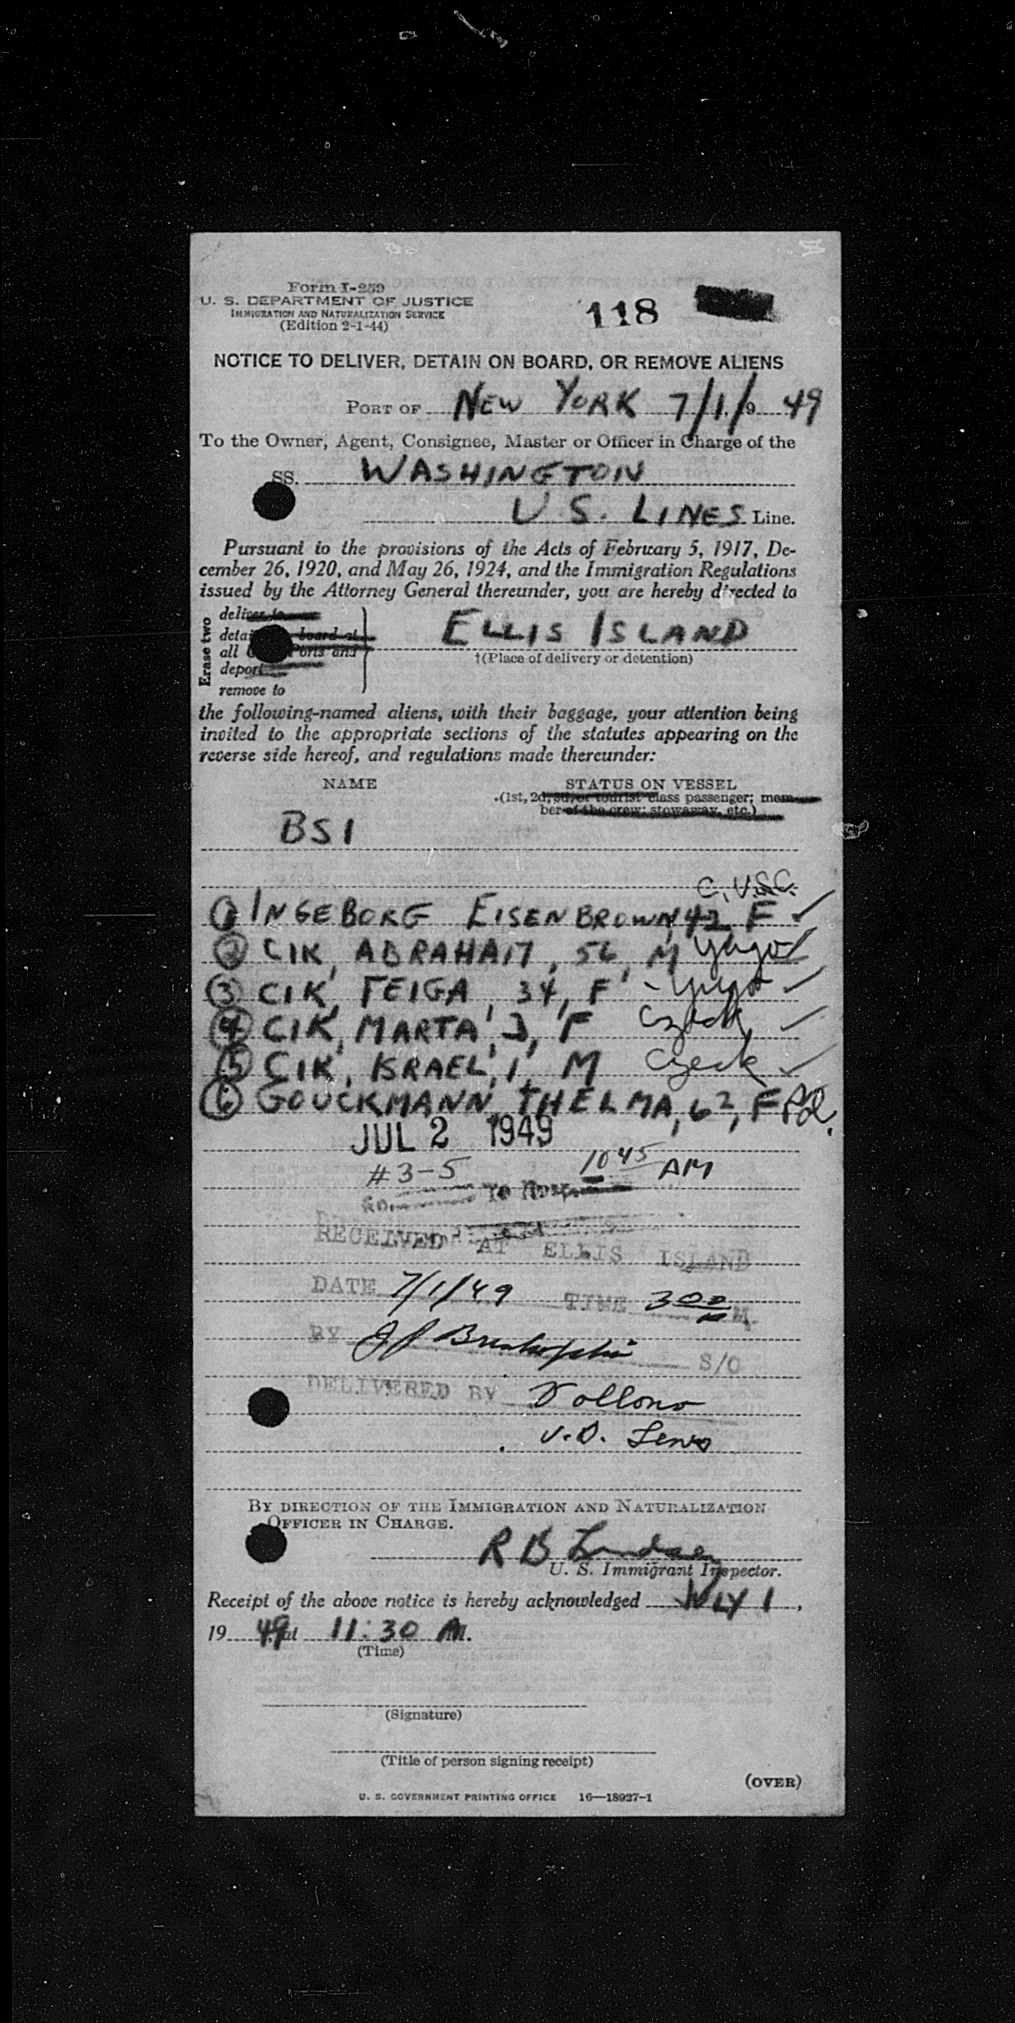 Form I-259
U. S. DEPARTMENT OF JUSTICE
IMMIGRATION AND NATURALIZATION SERVICE
(Edition 2-1-44)
118
NOTICE TO DELIVER, DETAIN ON BOARD, OR REMOVE ALIENS
PORT OF NEW YORK 7/1/9 49
To the Owner, Agent, Consignee, Master or Officer in Charge of the
SS. WASHINGTON
U S. LINES Line.
Pursuant to the provisions of the Acts of February 5, 1917, De-
cember 26, 1920, and May 26, 1924, and the Immigration Regulations
issued by the Attorney General thereunder, you are hereby directed to
Erase two
deliver to
detain board at
all Ports and
deport
remove to
ELLIS ISLAND
†(Place of delivery or detention)
the following-named aliens, with their baggage, your attention being
invited to the appropriate sections of the statutes appearing on the
reverse side hereof, and regulations made thereunder:
NAME STATUS ON VESSEL
(1st, 2d, 3d, or tourist class passenger; mem-
ber of the crew; stowaway, etc.)
BSI
C, USC.
1 INGEBORG EISENBROWN, 42, F ✓
2 CIK, ABRAHAM, 56, M Yugo ✓
3 CIK, FEIGA, 34, F - Yugo ✓
4 CIK, MARTA, 3, F Czech, ✓
5 CIK, ISRAEL, 1, M Czeck ✓
6 GOUCKMANN, THELMA, 62, F Pol.
JUL 2 1949
# 3-5 10 45 AM
RECEIVED AT ELLIS ISLAND
DATE 7/1/49 TIME 3 00 M.
BY S/O
DELIVERED BY
V.D.
BY DIRECTION OF THE IMMIGRATION AND NATURALIZATION
OFFICER IN CHARGE.
R B Lindsey
U. S. Immigrant Inspector.
Receipt of the above notice is hereby acknowledged JULY 1,
19 49, at 11:30 A M.
(Time)
(Signature)
(Title of person signing receipt)
(OVER)
U. S. GOVERNMENT PRINTING OFFICE 16—18927-1